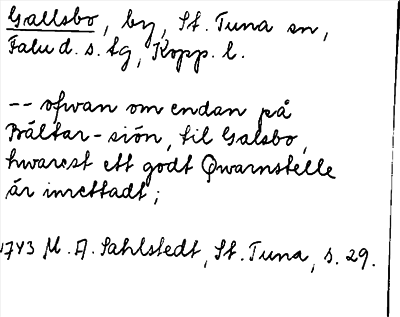 Gallsbo, by, St. Tuna sn,
Falu d. s. tg, Kopp. l.
-- ofwan om endan på
Bältar-siön, til Galsbo,
hwarest ett godt Qwarnstelle
är inrettadt;
1743 M. A. Sahlstedt, St. Tuna, s. 29.